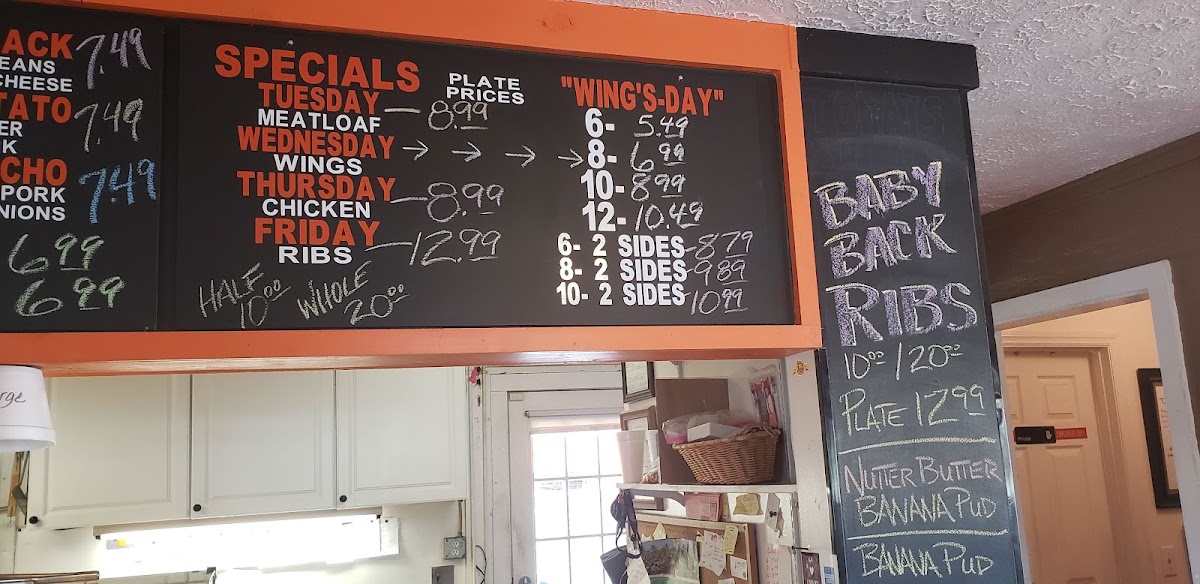 ACK 7.49
EANS
CHEESE
TATO 7.49
ER
K
CHO 7.49
PORK
NIONS
6.99
6.99
SPECIALS
PLATE
PRICES
TUESDAY
MEATLOAF - 8.99
WEDNESDAY → → → →
WINGS
THURSDAY
CHICKEN - 8.99
FRIDAY
RIBS - 12.99
HALF WHOLE
10.00 20.00
"WING'S-DAY"
6- 5.49
8- 6.99
10- 8.99
12- 10.49
6- 2 SIDES - 8.79
8- 2 SIDES - 9.89
10- 2 SIDES 10.99
BABY
BACK
RIBS
10.00 / 20.00
PLATE 12.99
NUTTER BUTTER
BANANA PUD
BANANA PUD
rge